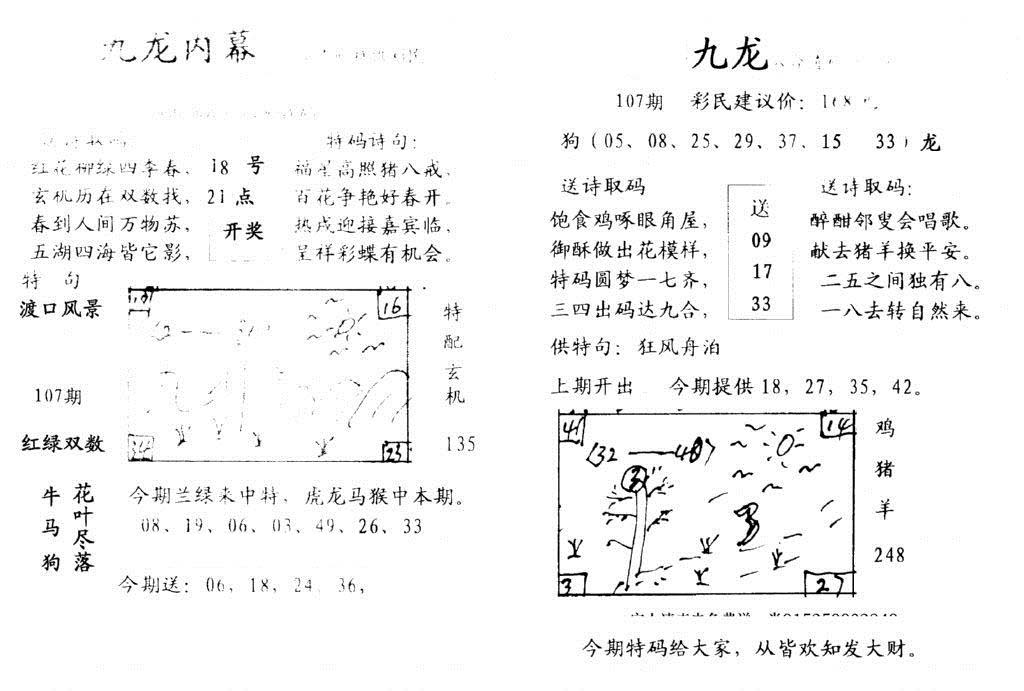 九龙内幕
特码诗句：
红花柳绿四季春，
玄机历在双数找，
春到人间万物苏，
五湖四海皆它影，
18 号
21 点
开奖
福星高照猪八戒，
百花争艳好春开。
热戌迎接嘉宾临，
呈祥彩蝶有机会。
特 句
渡口风景
107期
红绿双数
16
23
特配玄机
135
牛马狗
花叶尽落
今期兰绿来中特，虎龙马猴中本期。
08、19、06、03、49、26、33
今期送：06，18，24，36，
九龙
107期 彩民建议价：168
狗（05、08、25、29、37、15 33）龙
送诗取码
饱食鸡啄眼角屋，
御酥做出花模样，
特码圆梦一七齐，
三四出码达九合，
送
09
17
33
送诗取码：
醉酣邻叟会唱歌。
献去猪羊换平安。
二五之间独有八。
一八去转自然来。
供特句：狂风舟泊
上期开出 今期提供18，27，35，42。
41
14
32
3
27
鸡
猪
羊
248
今期特码给大家，从皆欢知发大财。